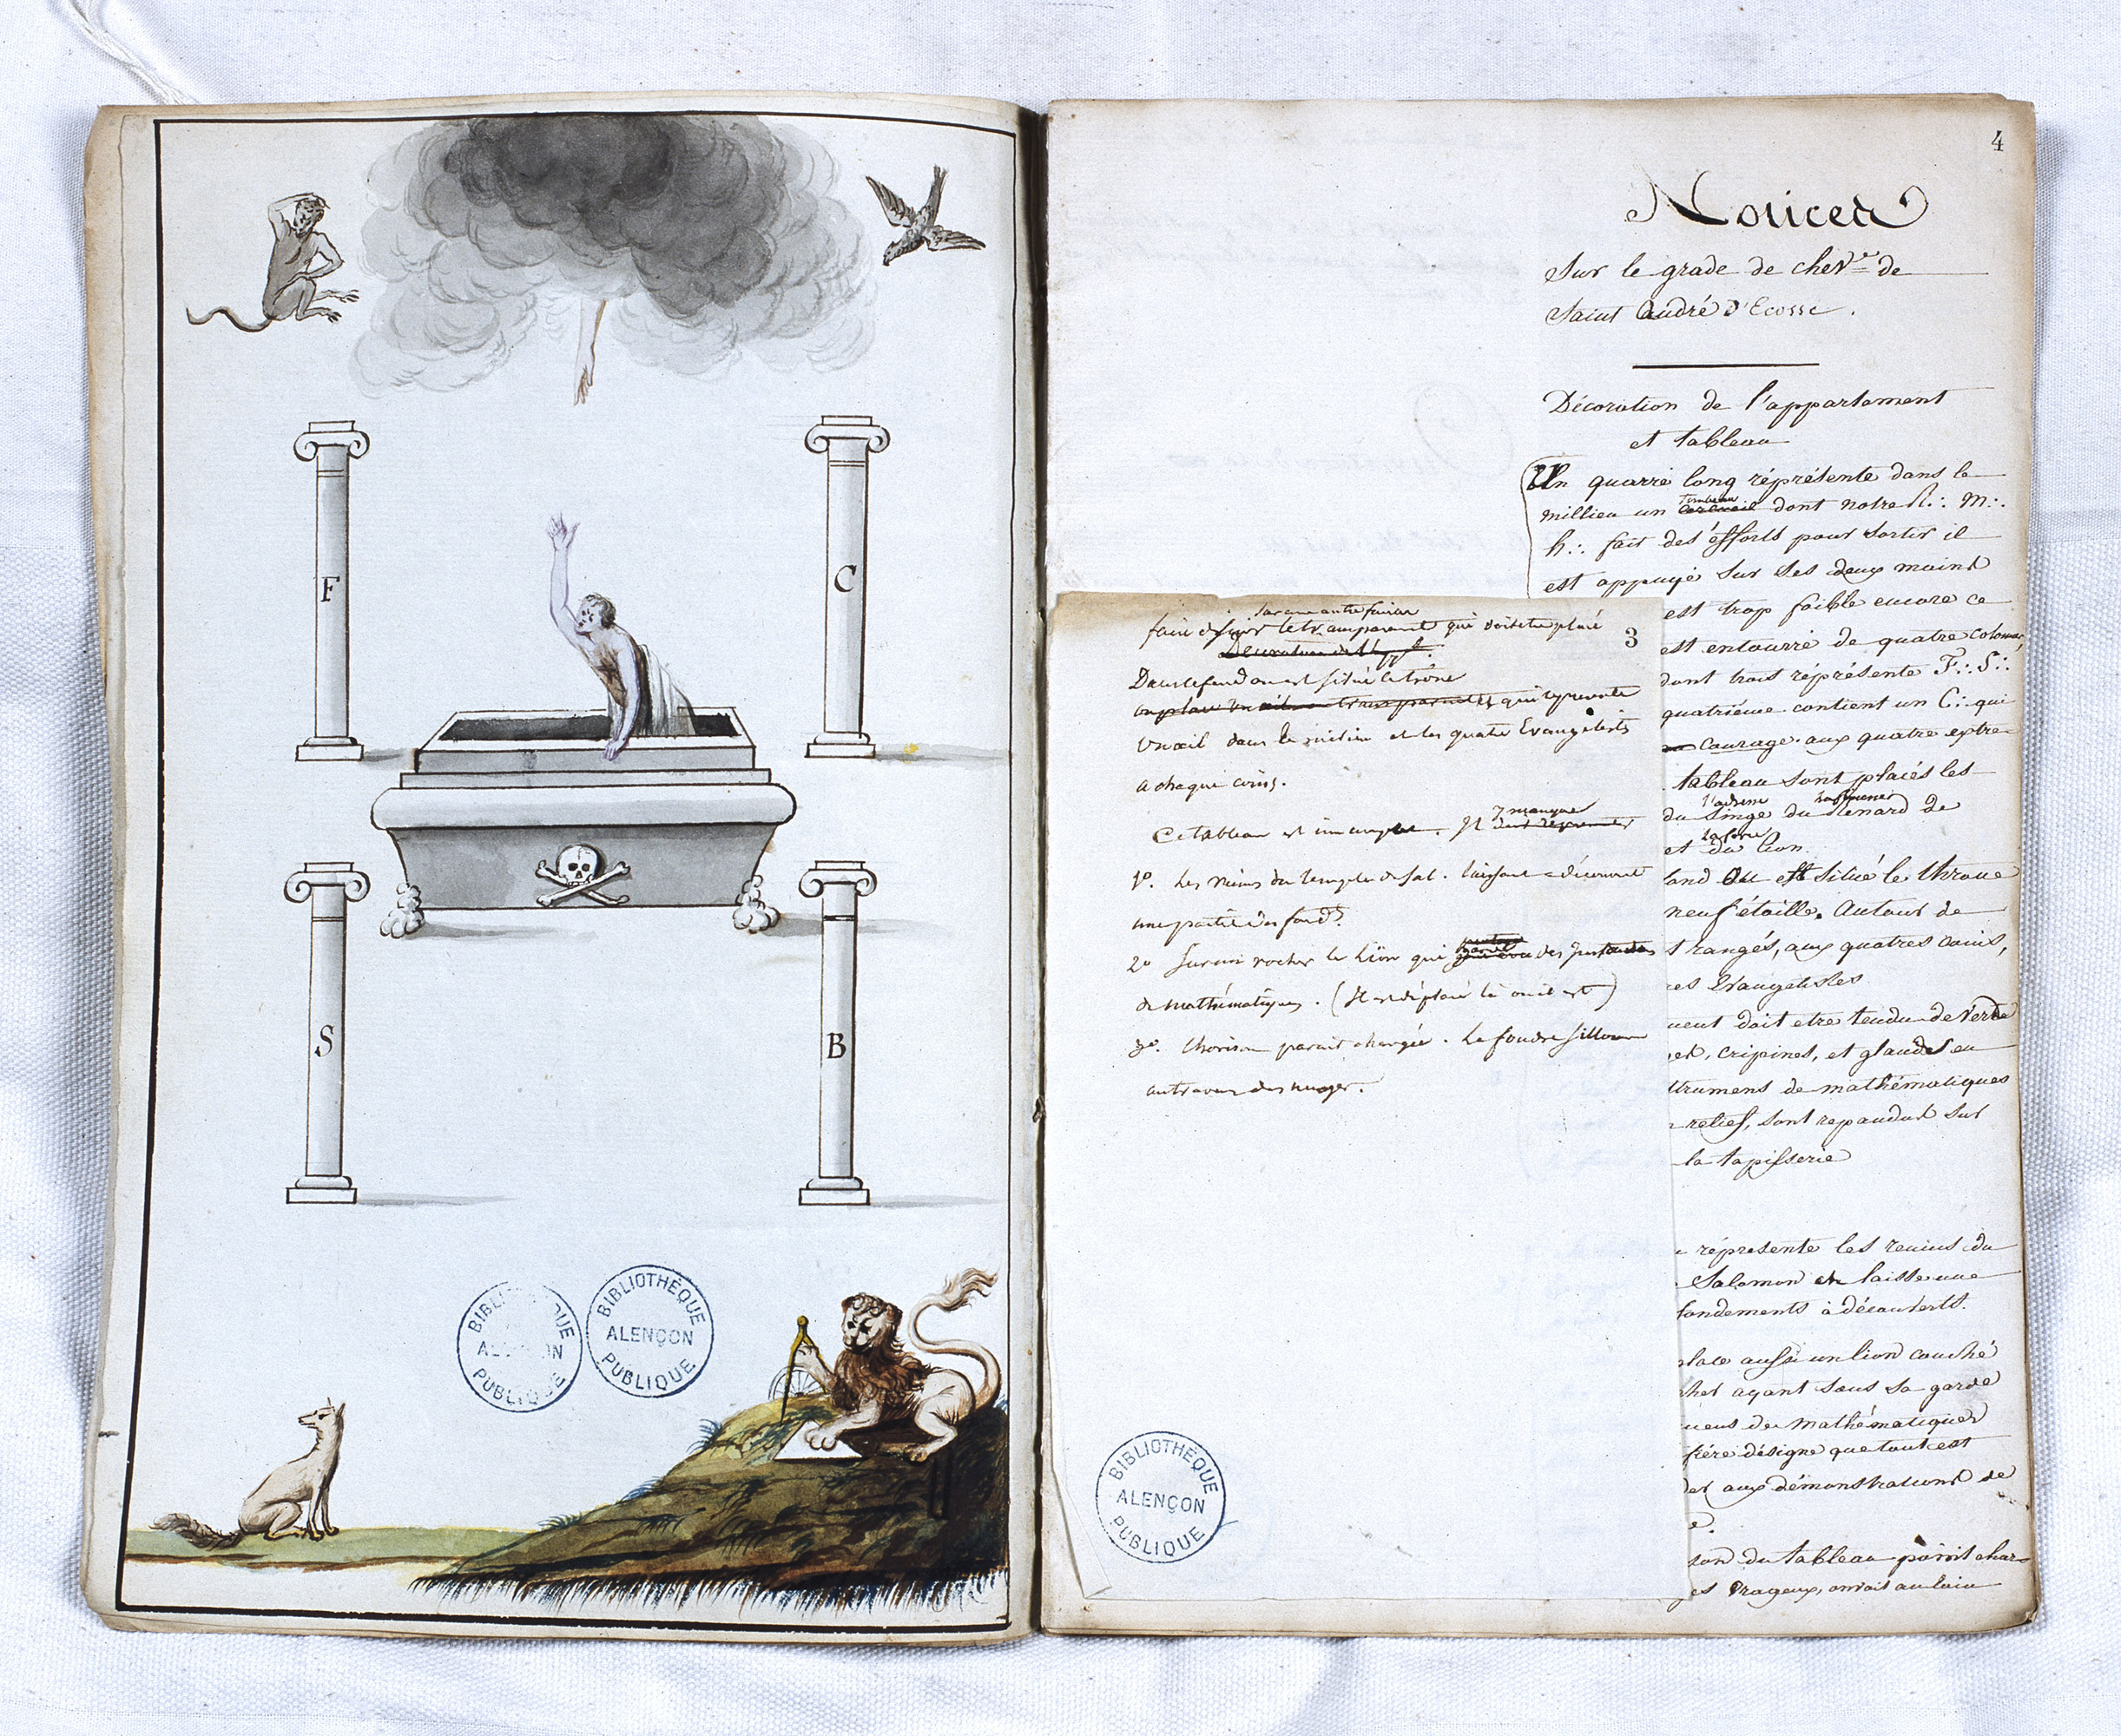 F
C
S
B
BIBLIOTHÈQUE
ALENÇON
PUBLIQUE
BIBLIOTHÈQUE
ALENÇON
PUBLIQUE
4
Notices
Sur le grade de chev.er de
Saint André d'Ecosse.
Décoration de l'appartement
et tableau
Un quarré long réprésente dans le
tombeau
millieu un cercueil dont notre R∴ M∴
h∴ fait des éfforts pour sortir il
est appuyé sur ses deux mains
est trop foible encore ce
est entourré de quatre colonnes
dont trois réprésente F∴ S∴
quatrième contient un C∴ qui
Courage. aux quatre extre-
tableau sont placés les
l'adresse
du Singe du Renard de
la force
et du lion.
où est situé le throne
neuf étoille. Autour de
rangés, aux quatres coins,
Evangelistes
doit etre tendu de Verte
cripines, et glandes en
de mathématiques
relief, sont repandus sur
la tapisserie
réprésente les ruines du
Salomon et laisse une
fondements à découverts.
aussi un lion couché
ayant sous sa garde
de Mathématiques
désigne que tout est
aux démonstrations de
du tableau paroit char-
orageux, on voit au loin
3
qui doit etre placé
Dans le fond ou est situé le trône
qui represente
un œil dans le milieu et les quatre Evangelistes
a chaque coins.
Ce tableau est incomplet. Il y manque
1º. Les ruines du temple de Sal. laissant a découvert
une partie des fond.ts
2º Sur un rocher le Lion qui des
de mathématiques. (Il est déplacé là où il est)
3º. L'horison parait chargée. La foudre sillonne
au travers des nuages.
BIBLIOTHÈQUE
ALENÇON
PUBLIQUE